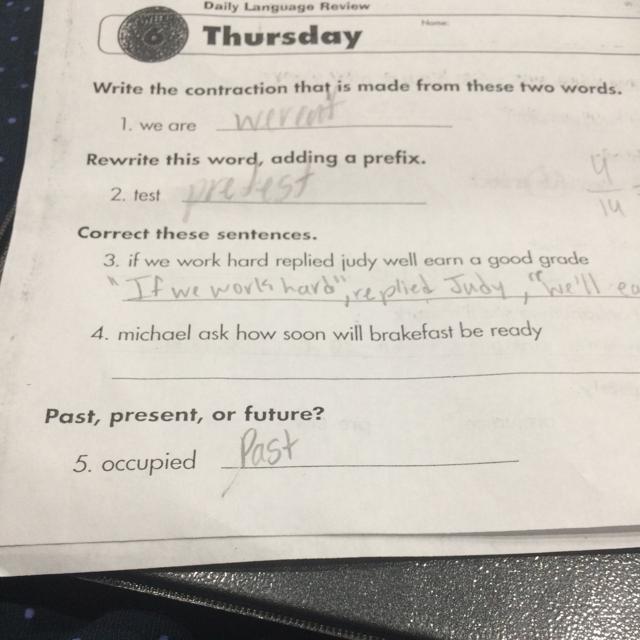 Daily Language Review
WEEK
6
Thursday
Name:
Write the contraction that is made from these two words.
1. we are werent
Rewrite this word, adding a prefix.
2. test pretest
4
14
Correct these sentences.
3. if we work hard replied judy well earn a good grade
"If we work hard", replied Judy, "we'll ea
4. michael ask how soon will brakefast be ready
Past, present, or future?
5. occupied Past